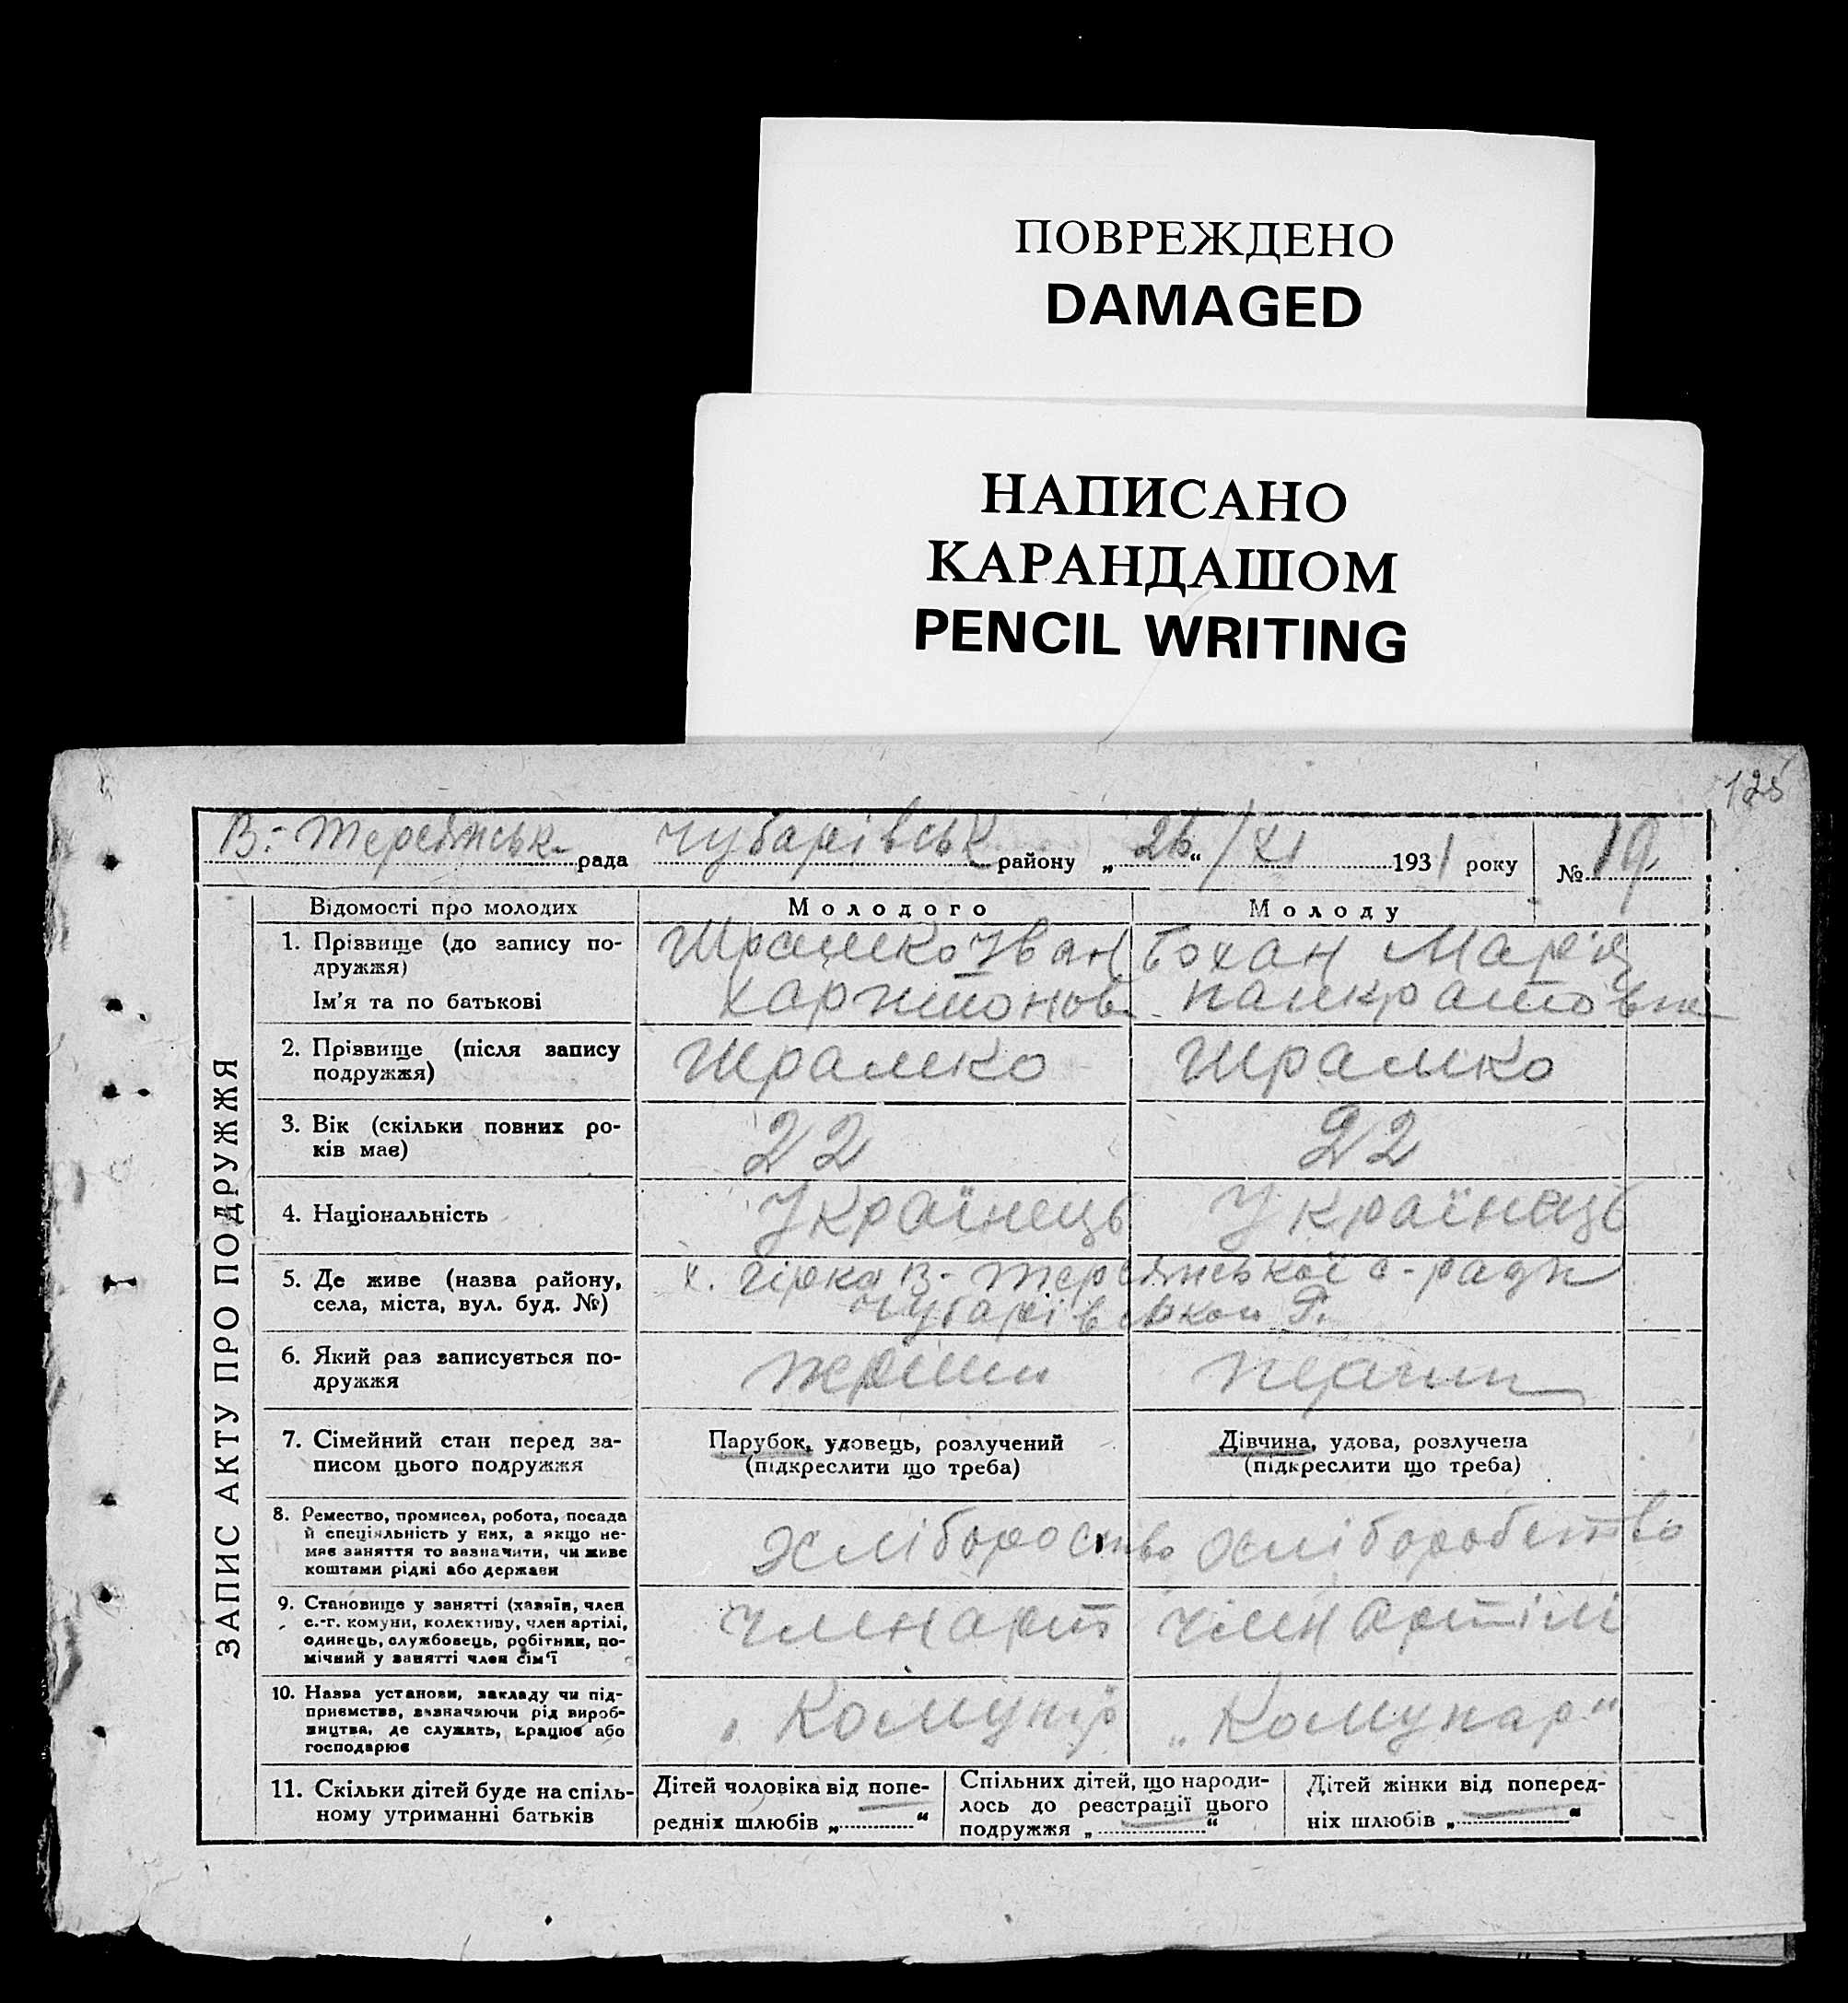 ПОВРЕЖДЕНО
DAMAGED
НАПИСАНО
КАРАНДАШОМ
PENCIL WRITING
125
В.-Терсянськ рада Чубарівськ району „26“/XI 1931 року № 19
ЗАПИС АКТУ ПРО ПОДРУЖЖЯ
Відомості про молодих Молодого Молоду
1. Прізвище (до запису по-
дружжя)
Ім'я та по батькові
Шрамко Іван
Харитонов
Бохан Мар'я
Панкратовн
2. Прізвище (після запису
подружжя)
Шрамко Шрамко
3. Вік (скільки повних ро-
ків має)
22 22
4. Національність Українець Українець
5. Де живе (назва району,
села, міста, вул. буд. №)
х. Гірка В-Терсянської с-ради
Чубарівської Р.
6. Який раз записується по-
дружжя
перший перший
7. Сімейний стан перед за-
писом цього подружжя
Парубок, удовець, розлучений
(підкреслити що треба)
Дівчина, удова, розлучена
(підкреслити що треба)
8. Ремество, промисел, робота, посада
й спеціяльність у них, а якщо не-
має заняття то зазначити, чи живе
коштами рідні або держави
хліборобство хліборобство
9. Становище у занятті (хазяїн, член
с.-г. комуни, колективу, член артілі,
одинець, службовець, робітник, по-
мічний у занятті член сім'ї
член арт член артілі
10. Назва установи, закладу чи під-
приємства, зазначаючи рід вироб-
ництва, де служить, працює або
господарює
„Комунар „Комунар“
11. Скільки дітей буде на спіль-
ному утриманні батьків
Дітей чоловіка від попе-
редніх шлюбів „ “
Спільних дітей, що народи-
лось до реєстрації цього
подружжя „ “
Дітей жінки від поперед-
ніх шлюбів „ “